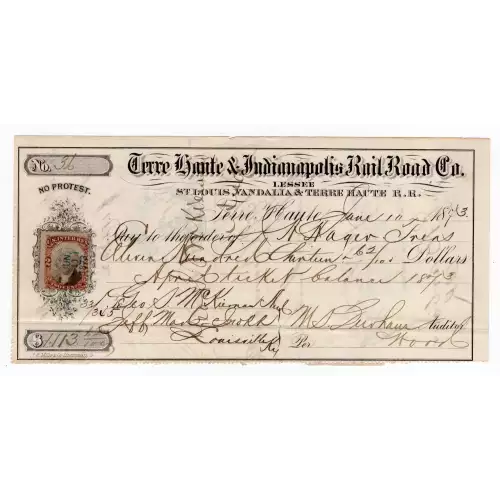 No. 36
Terre Haute & Indianapolis Rail Road Co.
LESSEE
ST LOUIS, VANDALIA & TERRE HAUTE R.R.
NO PROTEST.
Terre Haute, June 10 1873.
Pay to the order of J. H. Hager Treas
Eleven Hundred Thirteen 62/100 Dollars
April ticket balance 1873
Geo. S. McKiernan
Jeff Mad &
Louisville Ky
Auditor
Per Wood
$ 1113